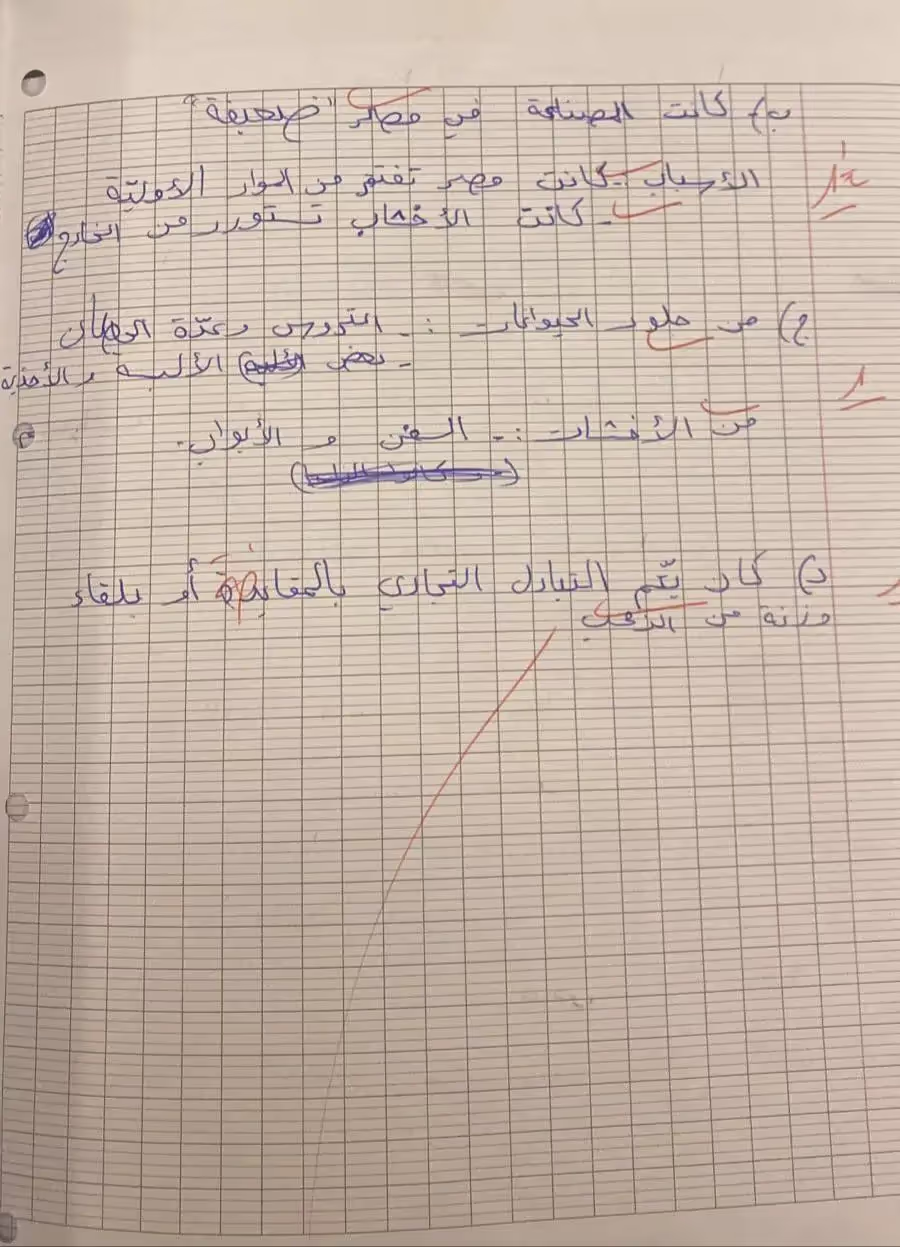 ب) كانت الصناعة في مصر "ضعيفة"
الأسباب - كانت مصر تفتقر من الموار الأولية
- كانت الأخشاب تستورد من الخارج
ج) من جلود الحيوانات :- التروس وعدّة
- بعض الألبسة والأحذية
من الأخشاب :- السفن و الأبواب.
د) كان يتّم التبادل التجاري بالمقايضة أو بلقاء
وزنة من الذهب